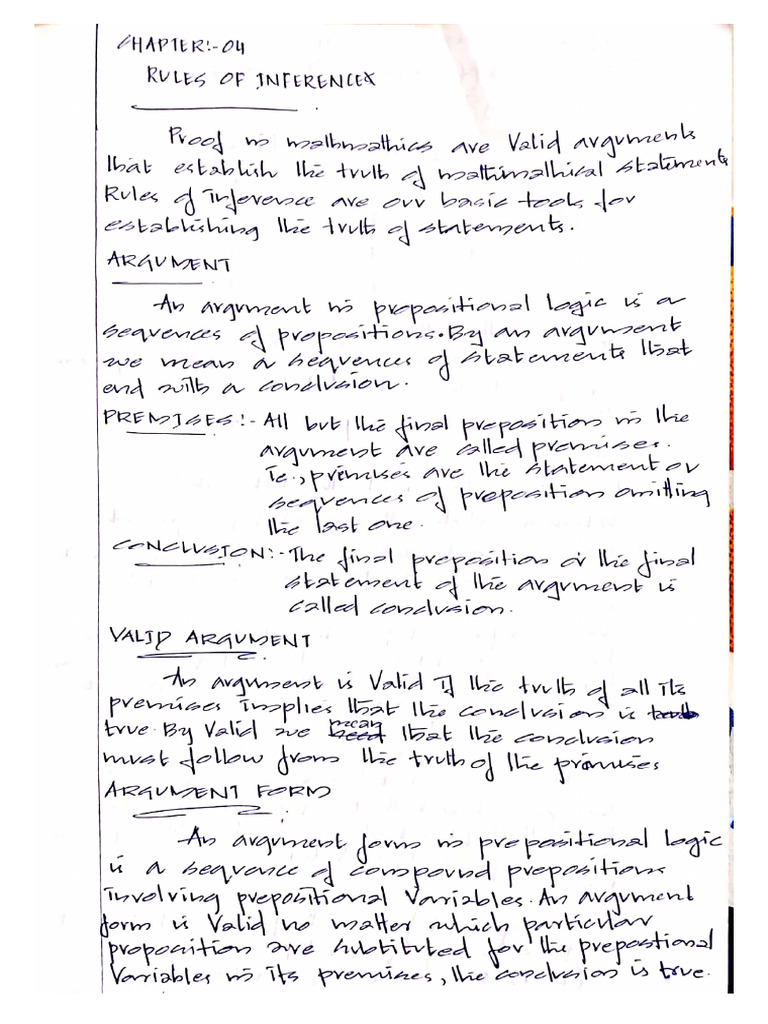 CHAPTER:-04
RULES OF INFERENCE
Proof in mathmathics are Valid arguments
that establish the truth of mathimathical statements
Rules of Inference are our basic tools for
establishing the truth of statements.
ARGUMENT
An argument in propositional logic is a
sequences of propositions. By an argument
we mean a sequences of statements that
end with a conclusion.
PREMISES:- All but the final preposition in the
argument are called premises.
Ie., premises are the statement or
sequences of preposition omitting
the last one.
CONCLUSION:- The final preposition or the final
statement of the argument is
called conclusion.
VALID ARGUMENT
An argument is Valid if the truth of all its
premises implies that the conclusion is
true. By Valid we mean that the conclusion
must follow from the truth of the premises
ARGUMENT FORM
An argument form in prepositional logic
is a sequence of compound prepositions
involving prepositional Variables. An argument
form is Valid no matter which particular
proposition are subtituted for the prepostional
Variables in its premises, the conclusion is true.